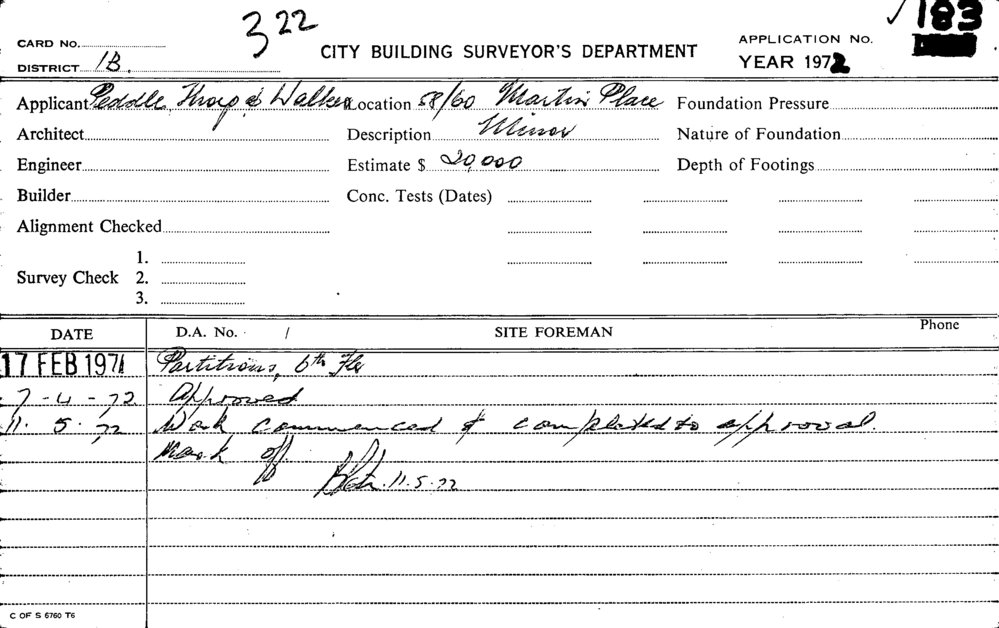 322
183
CARD No.
CITY BUILDING SURVEYOR'S DEPARTMENT
APPLICATION No.
DISTRICT 1B.
YEAR 1972
Applicant Peddle, Thorp & Walker Location 58/60 Martin Place Foundation Pressure
Architect Description Minor Nature of Foundation
Engineer Estimate $ 20,000 Depth of Footings
Builder Conc. Tests (Dates)
Alignment Checked
1.
Survey Check 2.
3.
DATE D.A. No. / SITE FOREMAN Phone
17 FEB 1971 Partitions, 6th Flr
7-4-72 Approved
11.5.72 Work commenced & completed to approval.
Mark off
11.5.72
C OF S 6760 T6